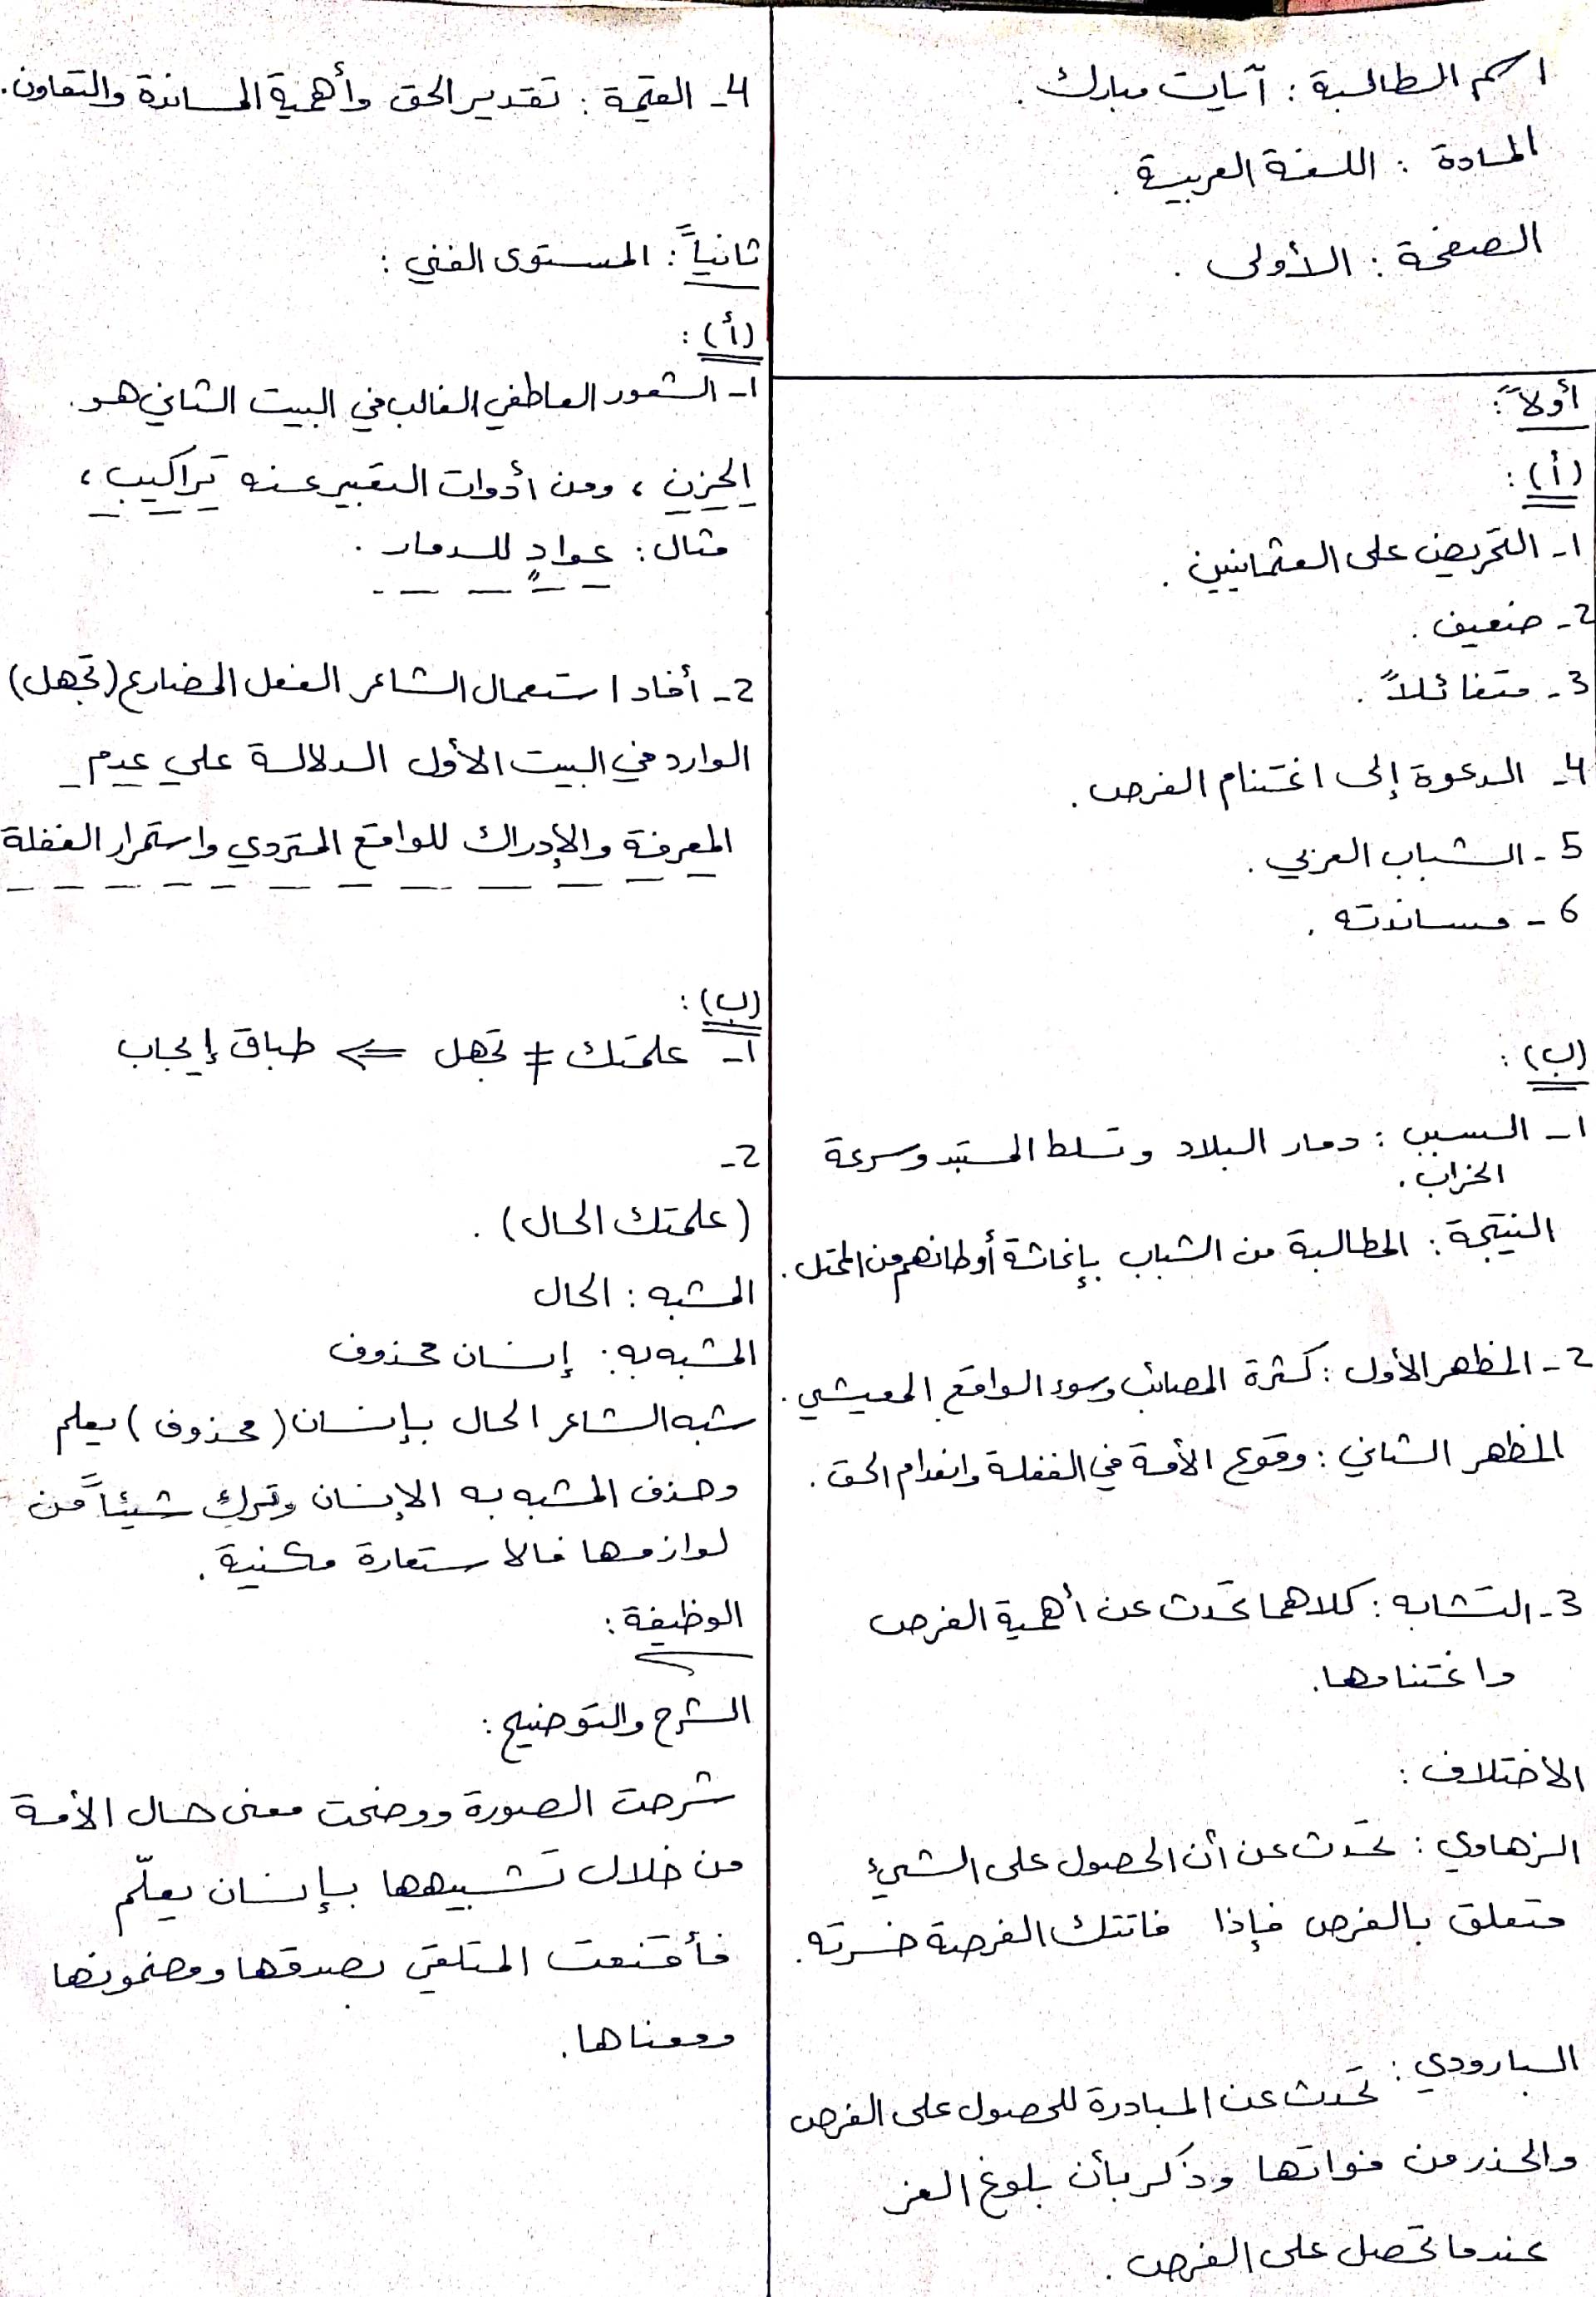 اسم الطالبة : آيات مبارك .
المادة : اللغة العربية .
الصفحة : الأولى .
أولاً :
(أ) :
1- التحريض على العثمانيين .
2- ضعيف .
3- متفائلاً .
4- الدعوة إلى اغتنام الفرص .
5- الشباب العربي .
6- مساندته .
(ب) :
1- السبب : دمار البلاد وتسلط المستبد وسرعة
الخراب .
النتيجة : المطالبة من الشباب بإغاثة أوطانهم من المحتل .
2- المظهر الأول : كثرة المصائب وسوء الواقع المعيشي .
المظهر الثاني : وقوع الأمة في الغفلة وانعدام الحق .
3- التشابه : كلاهما تحدث عن أهمية الفرص
واغتنامها.
الاختلاف :
الزهاوي : تحدث عن أن الحصول على الشيء
متعلق بالفرص فإذا فاتتك الفرصة خسرته .
البارودي :
تحدث عن المبادرة للحصول على الفرص
والحذر من فواتها وذكر بأن بلوغ العز
عندما تحصل على الفرص .
4- القيمة : تقدير الحق وأهمية المساندة والتعاون .
ثانياً : المستوى الفني :
(أ) :
1- الشعور العاطفي الغالب في البيت الثاني هو .
الحزن ، ومن أدوات التعبير عنه تراكيب ،
مثال : عوادٍ للدمار .
2- أفاد استعمال الشاعر الفعل المضارع (تجهل)
الوارد في البيت الأول الدلالة على عدم
المعرفة والإدراك للواقع المتردي واستمرار الغفلة
(ب) :
1- علمتك ≠ تجهل ⇐ طباق إيجاب
2-
(علمتك الحال) .
المشبه : الحال
المشبه به : إنسان محذوف
شبه الشاعر الحال بإنسان (محذوف) يعلم
وحذف المشبه به الإنسان وترك شيئاً من
لوازمها فالاستعارة مكنية .
الوظيفة :
الشرح والتوضيح :
شرحت الصورة ووضحت معنى حال الأمة
من خلال تشبيهها بإنسان يعلّم
فأقنعت المتلقي بصدقها ومضمونها
ومعناها .